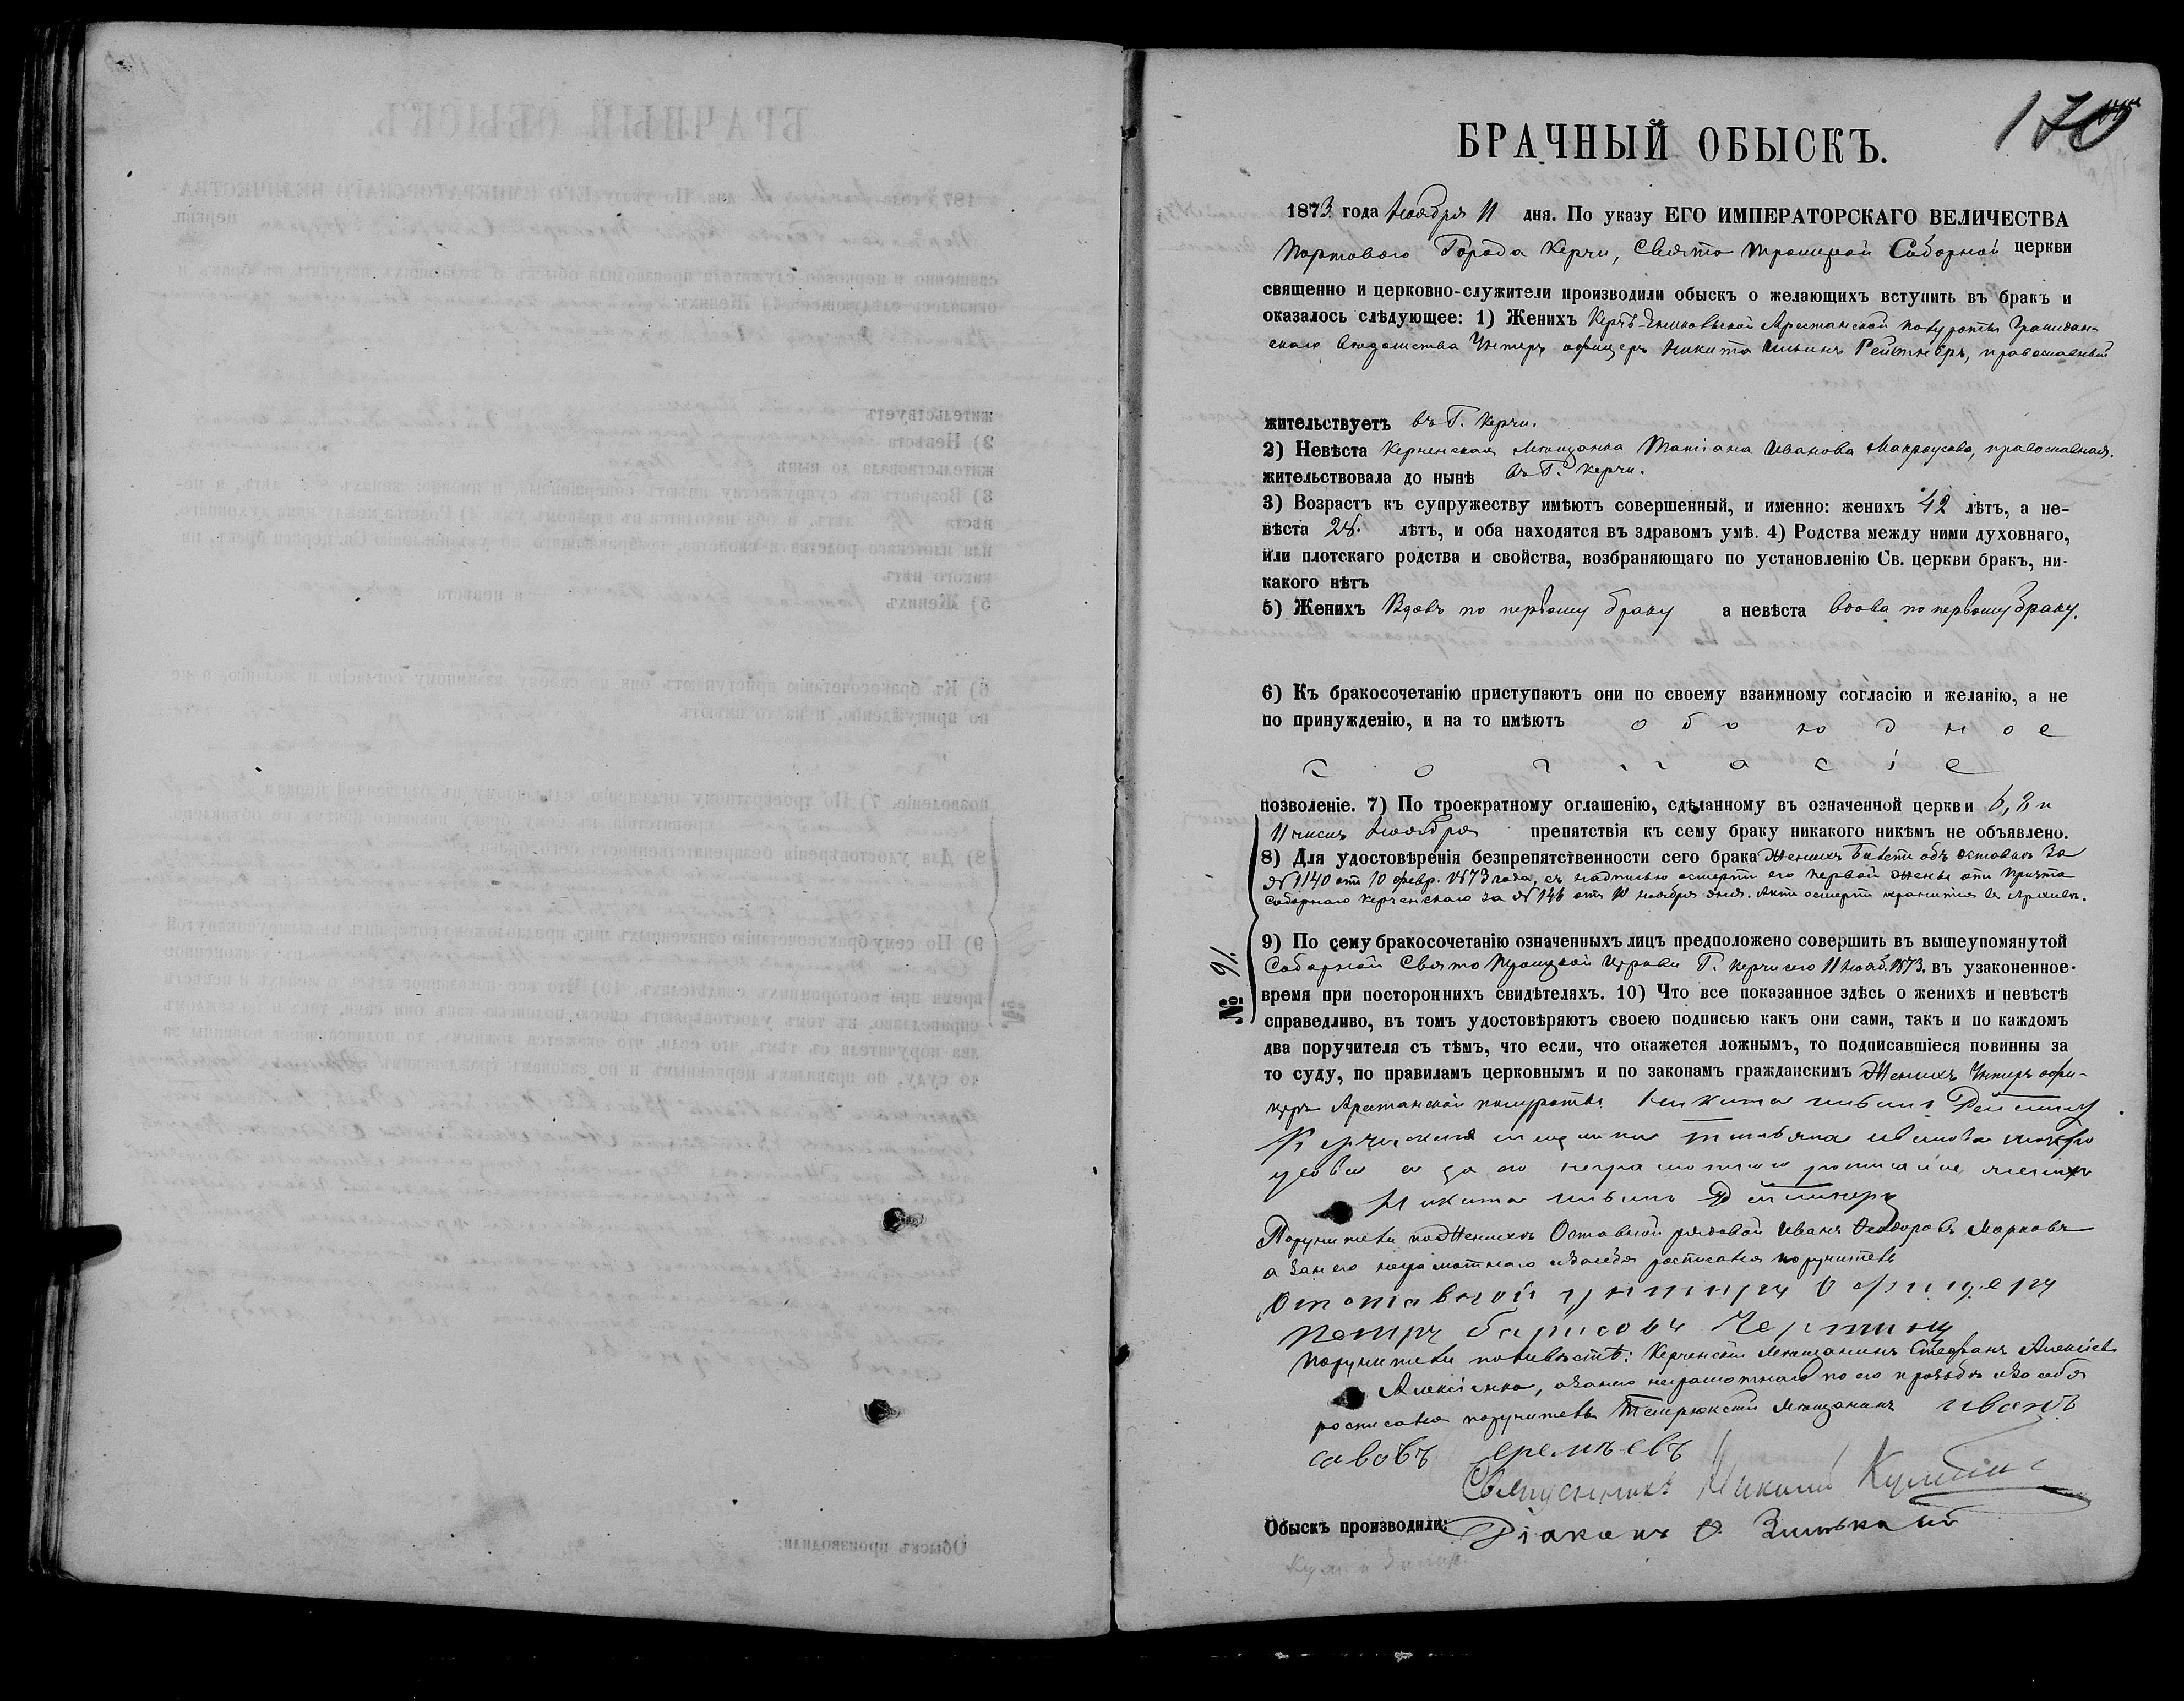 170
БРАЧНЫЙ ОБЫСКЪ.
1873 года Ноября 11 дня. По указу ЕГО ИМПЕРАТОРСКАГО ВЕЛИЧЕСТВА
Портоваго Города Керчи, Свято Троицкой Соборной церкви
священно и церковно-служители производили обыскъ о желающихъ вступить въ бракъ и
оказалось слѣдующее: 1) Женихъ Керчь-Еникольской Арестанской полуроты Граждан-
скаго вѣдомства Унтеръ офицеръ Никита Ильинъ Рейтнеръ, православный
жительствуетъ въ Г. Керчи.
2) Невѣста Керченская Мѣщанка Татіана Иванова Макроусова, православная.
жительствовала до нынѣ въ Г. Керчи.
3) Возрастъ къ супружеству имѣютъ совершенный, и именно: женихъ 42 лѣтъ, а не-
вѣста 28. лѣтъ, и оба находятся въ здравомъ умѣ. 4) Родства между ними духовнаго,
или плотскаго родства и свойства, возбраняющаго по установленію Св. церкви бракъ, ни-
какого нѣтъ
5) Женихъ Вдовъ по первому браку а невѣста вдова по первому браку.
6) Къ бракосочетанію приступаютъ они по своему взаимному согласію и желанію, а не
по принужденію, и на то имѣютъ обоюдное
согласіе
позволеніе. 7) По троекратному оглашенію, сдѣланному въ означенной церкви 6, 8 и
11 числъ Ноября препятствія къ сему браку никакого никѣмъ не объявлено.
8) Для удостовѣренія безпрепятственности сего брака Женихъ Билетъ объ отставкѣ за
№ 1140 отъ 10 февр. 1873 года, съ надписью осмерти его первой жены отъ Причта
Соборнаго Керченскаго за № 146 отъ 10 ноября дня. Актъ осмерти хранится въ Архивѣ.
9) По сему бракосочетанію означенныхъ лицъ предположено совершить въ вышеупомянутой
Соборной Свято Троицкой Церкви Г. Керчи сего 11 Нояб. 1873. въ узаконенное
время при постороннихъ свидѣтеляхъ. 10) Что все показанное здѣсь о женихѣ и невѣстѣ
№ 91.
справедливо, въ томъ удостовѣряютъ своею подписью какъ они сами, такъ и по каждомъ
два поручителя съ тѣмъ, что если, что окажется ложнымъ, то подписавшіеся повинны за
то суду, по правиламъ церковнымъ и по законамъ гражданскимъ Женихъ Унтеръ офи-
церъ Арестанской полуроты Никита ильинъ Рейтнеръ
Керчиская мещанка татьяна иванова макро
усова а за ею неграмотную росписался жених
Никита ильинъ Рейтнеръ
Поручители по Женихѣ Отставной рядовой Иванъ Феодоровъ Марковъ
а занего неграмотнаго изасебя росписался поручитель
Отставной унтиръ Офицеръ
Петръ барисовъ
поручители по невѣстѣ: Керченскій Мѣщанинъ Стефанъ Алексіевъ
Алексіенко, азанего неграмотнаго по его прозьбѣ изасебя
росписался поручитель Темрюкскій Мѣщанинъ иванъ
савовъ еремѣевъ
Священникъ Николай
Обыскъ производили: Діаконъ